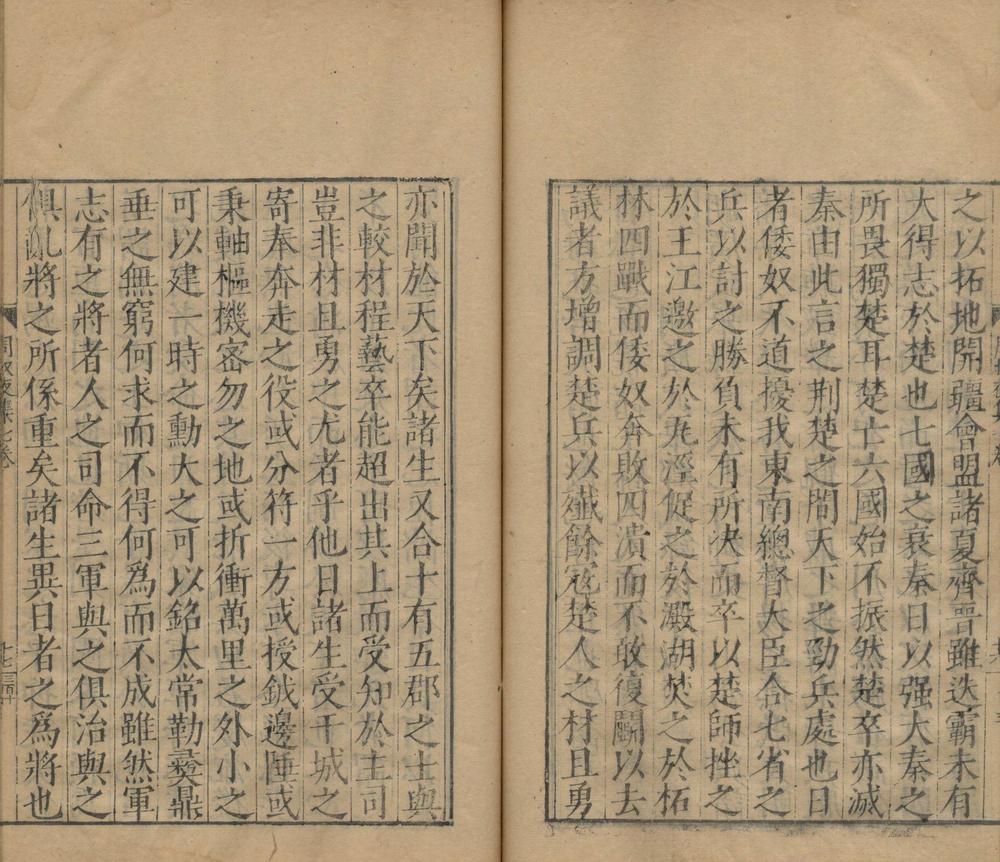 之以拓地開疆會盟諸夏齊晉雖迭霸未有
大得志於楚也七國之衰秦日以强大秦之
所畏獨楚耳楚亡六國始不振然楚卒亦滅
秦由此言之荆楚之間天下之勁兵處也日
者倭奴不道擾我東南總督大臣合七省之
兵以討之勝負未有所決而卒以楚師挫之
於王江邀之於九涇促之於澱湖焚之於柘
林四戰而倭奴奔敗四潰而不敢復鬭以去
議者方增調楚兵以殲餘宼楚人之材且勇
亦聞於天下矣諸生又合十有五郡之士與
之較材程藝卒能超出其上而受知於主司
豈非材且勇之尤者乎他日諸生受干城之
寄奉奔走之役或分符一方或授鉞邊陲或
秉軸樞機宻勿之地或折衝萬里之外小之
可以建一時之勳大之可以銘太常勒彛鼎
垂之無窮何求而不得何爲而不成雖然軍
志有之將者人之司命三軍與之俱治與之
俱亂將之所係重矣諸生異日者之爲將也
集七卷